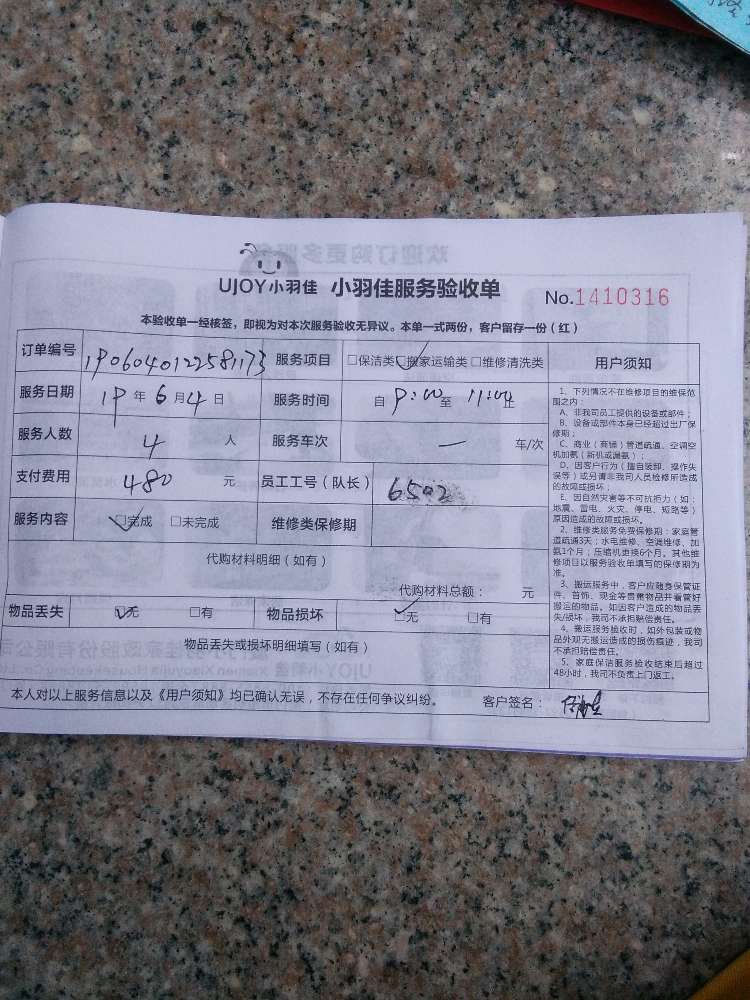 UJOY小羽佳 小羽佳服务验收单 No.1410316
本验收单一经核签，即视为对本次服务验收无异议。本单一式两份，客户留存一份（红）
订单编号 1906040122581173 服务项目 □保洁类 □搬家运输类 □维修清洗类 用户须知
服务日期 19 年 6 月 4 日 服务时间 自 9:00 至 11:00 止
服务人数 4 人 服务车次 — 车/次
支付费用 480 元 员工工号（队长） 6502
服务内容 □完成 □未完成 维修类保修期
代购材料明细（如有）
代购材料总额： 元
物品丢失 □无 □有 物品损坏 □无 □有
物品丢失或损坏明细填写（如有）
1、下列情况不在维修项目的维保范
围之内：
A、非我司员工提供的设备或部件；
B、设备或部件本身已经超过出厂保
修期；
C、商业（商铺）管道疏通、空调空
机加氨（新机或漏氨）；
D、因客户行为（擅自装卸、操作失
误等）或另请非我司人员检修所造成
的故障或损坏；
E、因自然灾害等不可抗拒力（如：
地震、雷电、火灾、停电、短路等）
原因造成的故障或损坏。
2、维修类服务免费保修期：家庭管
道疏通3天；水电维修、空调维修、加
氨1个月；压缩机更换6个月。其他维
修项目以服务验收单填写的保修期为
准。
3、搬运服务中，客户应随身保管证
件、首饰、现金等贵重物品并看管好
搬运的物品。如因客户造成的物品丢
失/损坏，我司不承担赔偿责任。
4、搬运服务验收时，如外包装或物
品外观无搬运造成的损伤痕迹，我司
不承担赔偿责任。
5、家庭保洁服务验收结束后超过
48小时，我司不负责上门返工。
本人对以上服务信息以及《用户须知》均已确认无误，不存在任何争议纠纷。 客户签名：